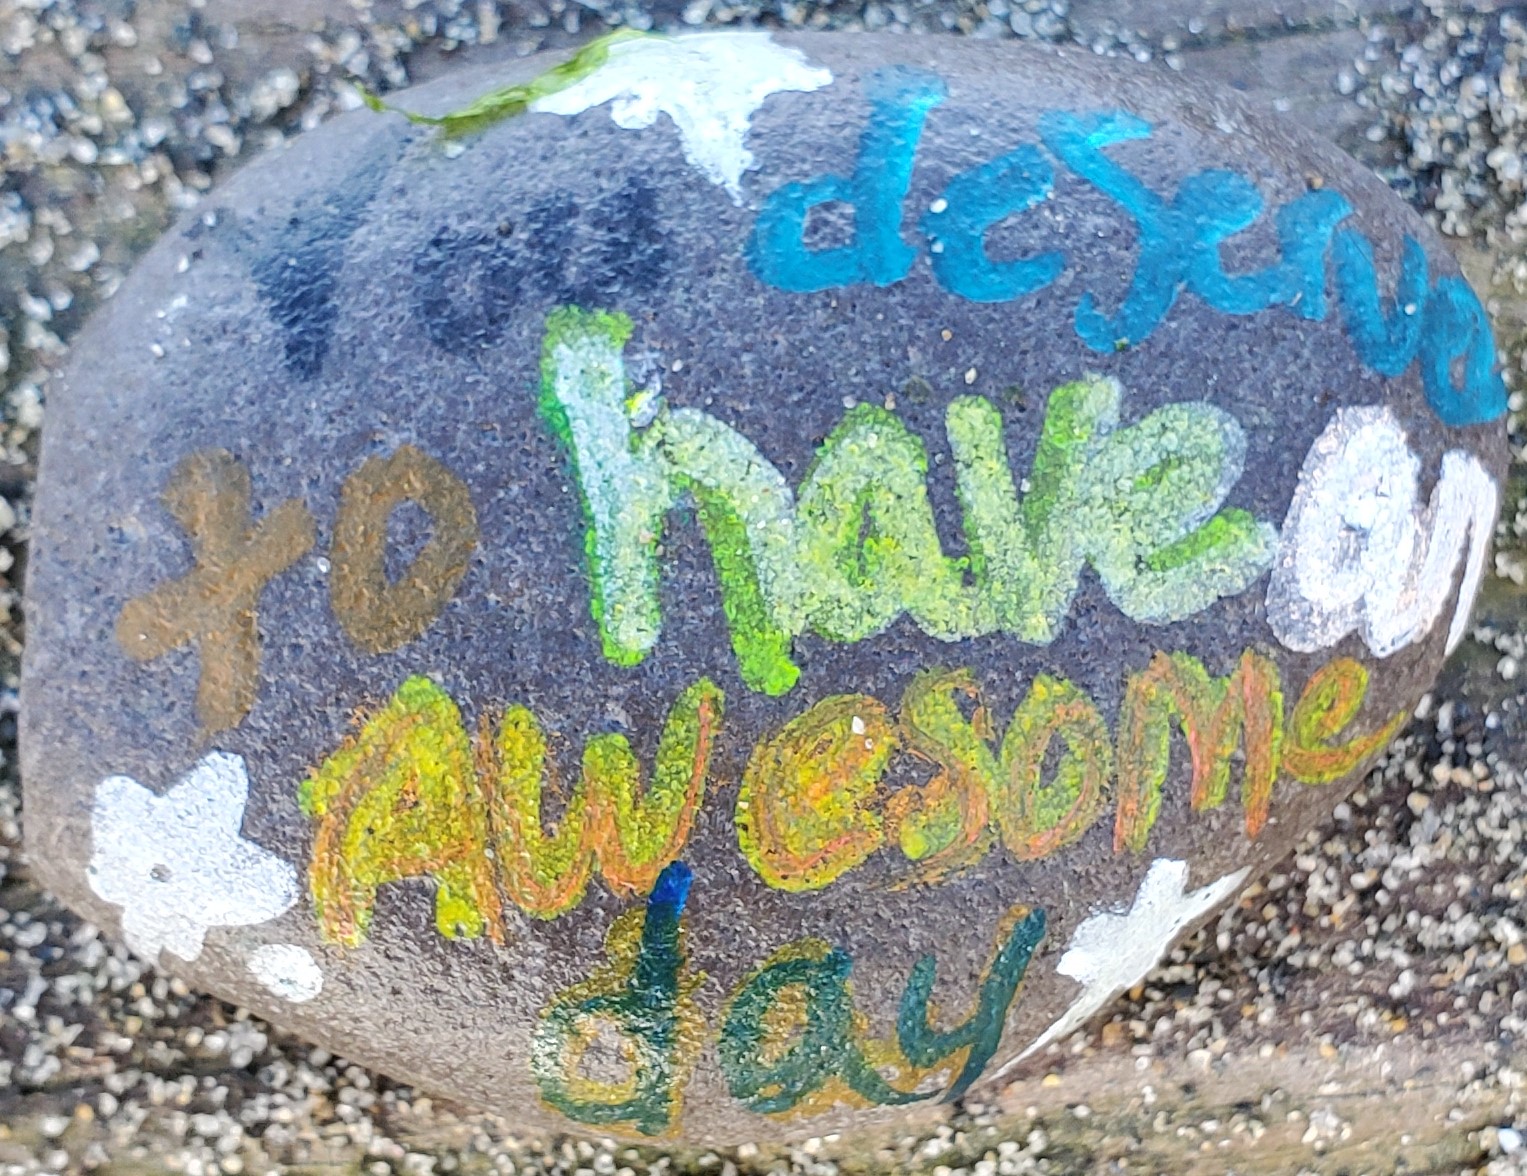 deserve
to have an
Awesome
day